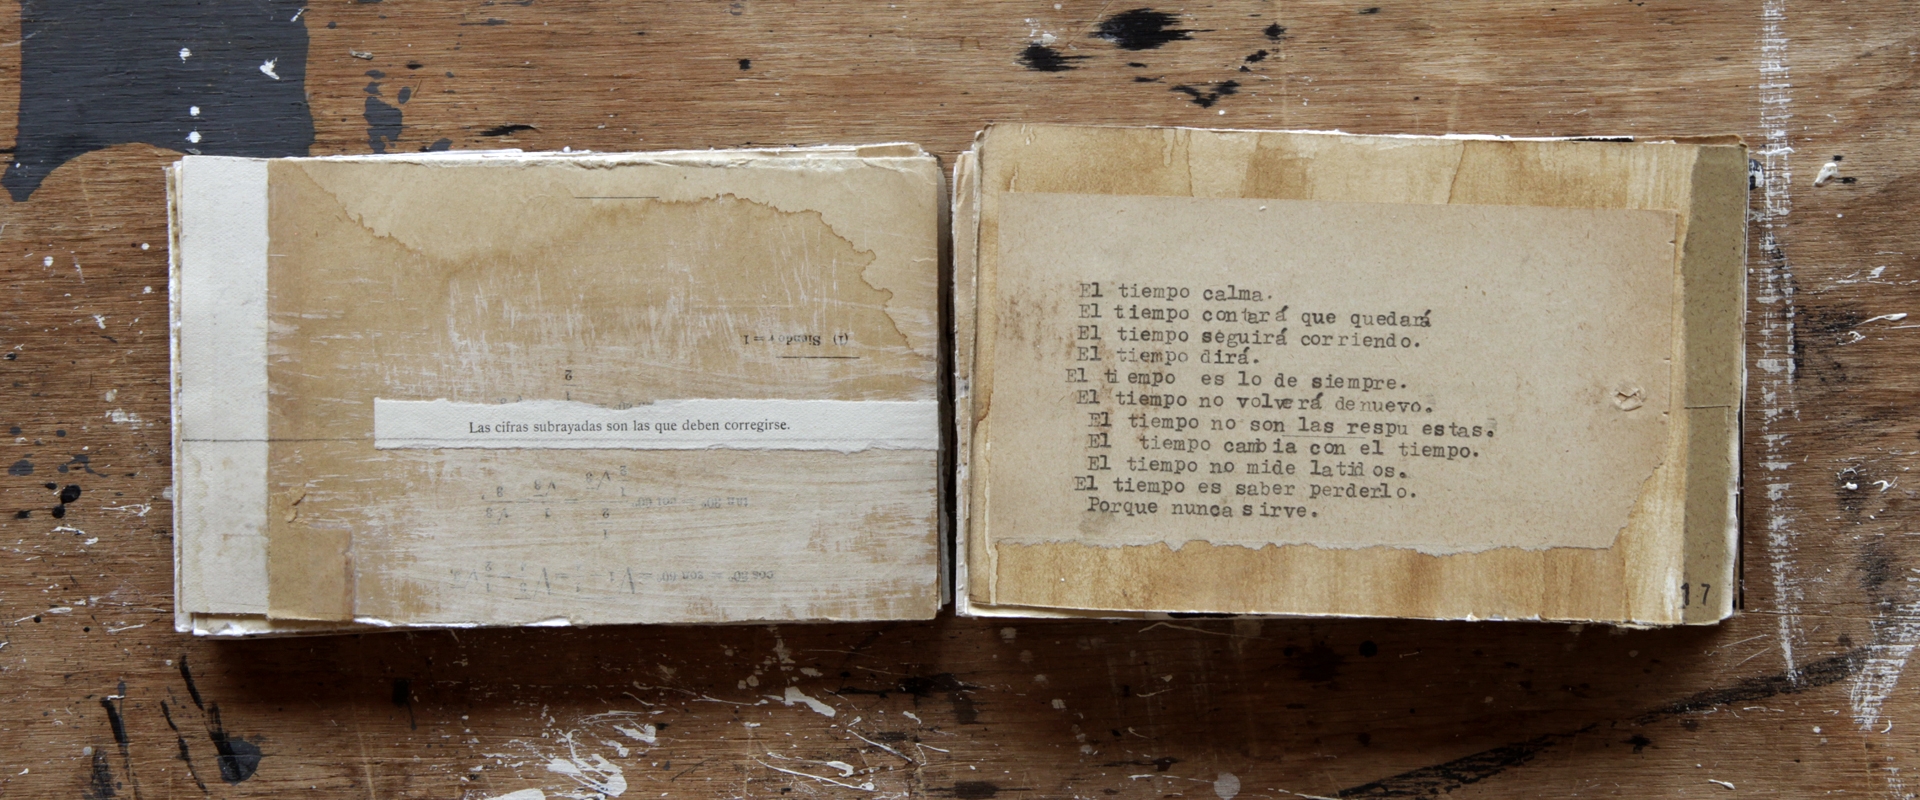 (1) Siendo r = 1
Las cifras subrayadas son las que deben corregirse.
El tiempo calma.
El tiempo contará que quedará
El tiempo seguirá corriendo.
El tiempo dirá.
El tiempo es lo de siempre.
El tiempo no volverá denuevo.
El tiempo no son las respu estas.
El tiempo cambia con el tiempo.
El tiempo no mide latidos.
El tiempo es saber perderlo.
Porque nunca sirve.
17